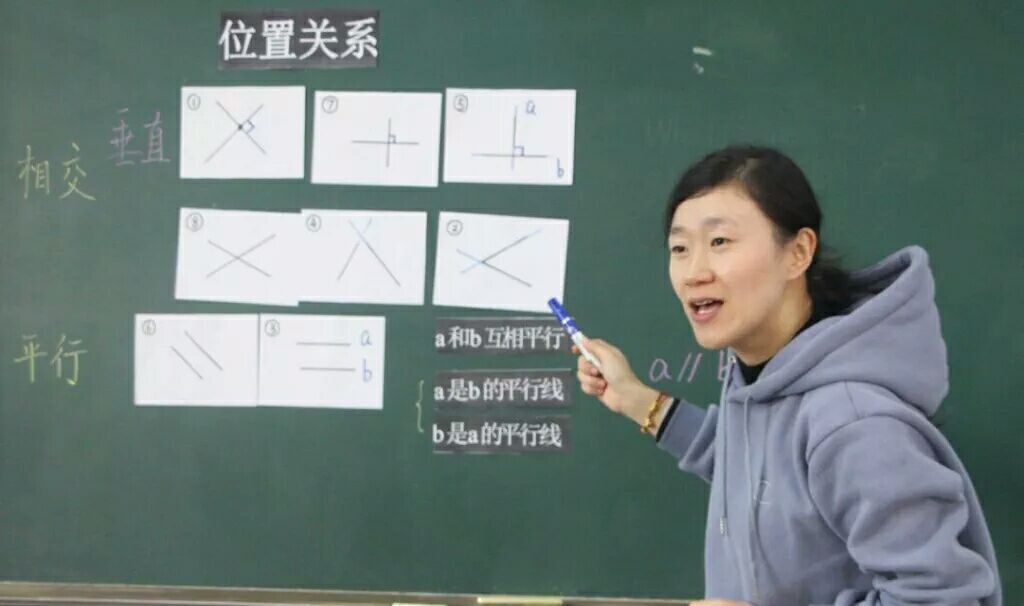 位置关系
相交
垂直
①
⑦
⑤
a
b
⑧
④
②
平行
⑥
③
a
b
a和b互相平行
a是b的平行线
b是a的平行线
a∥b